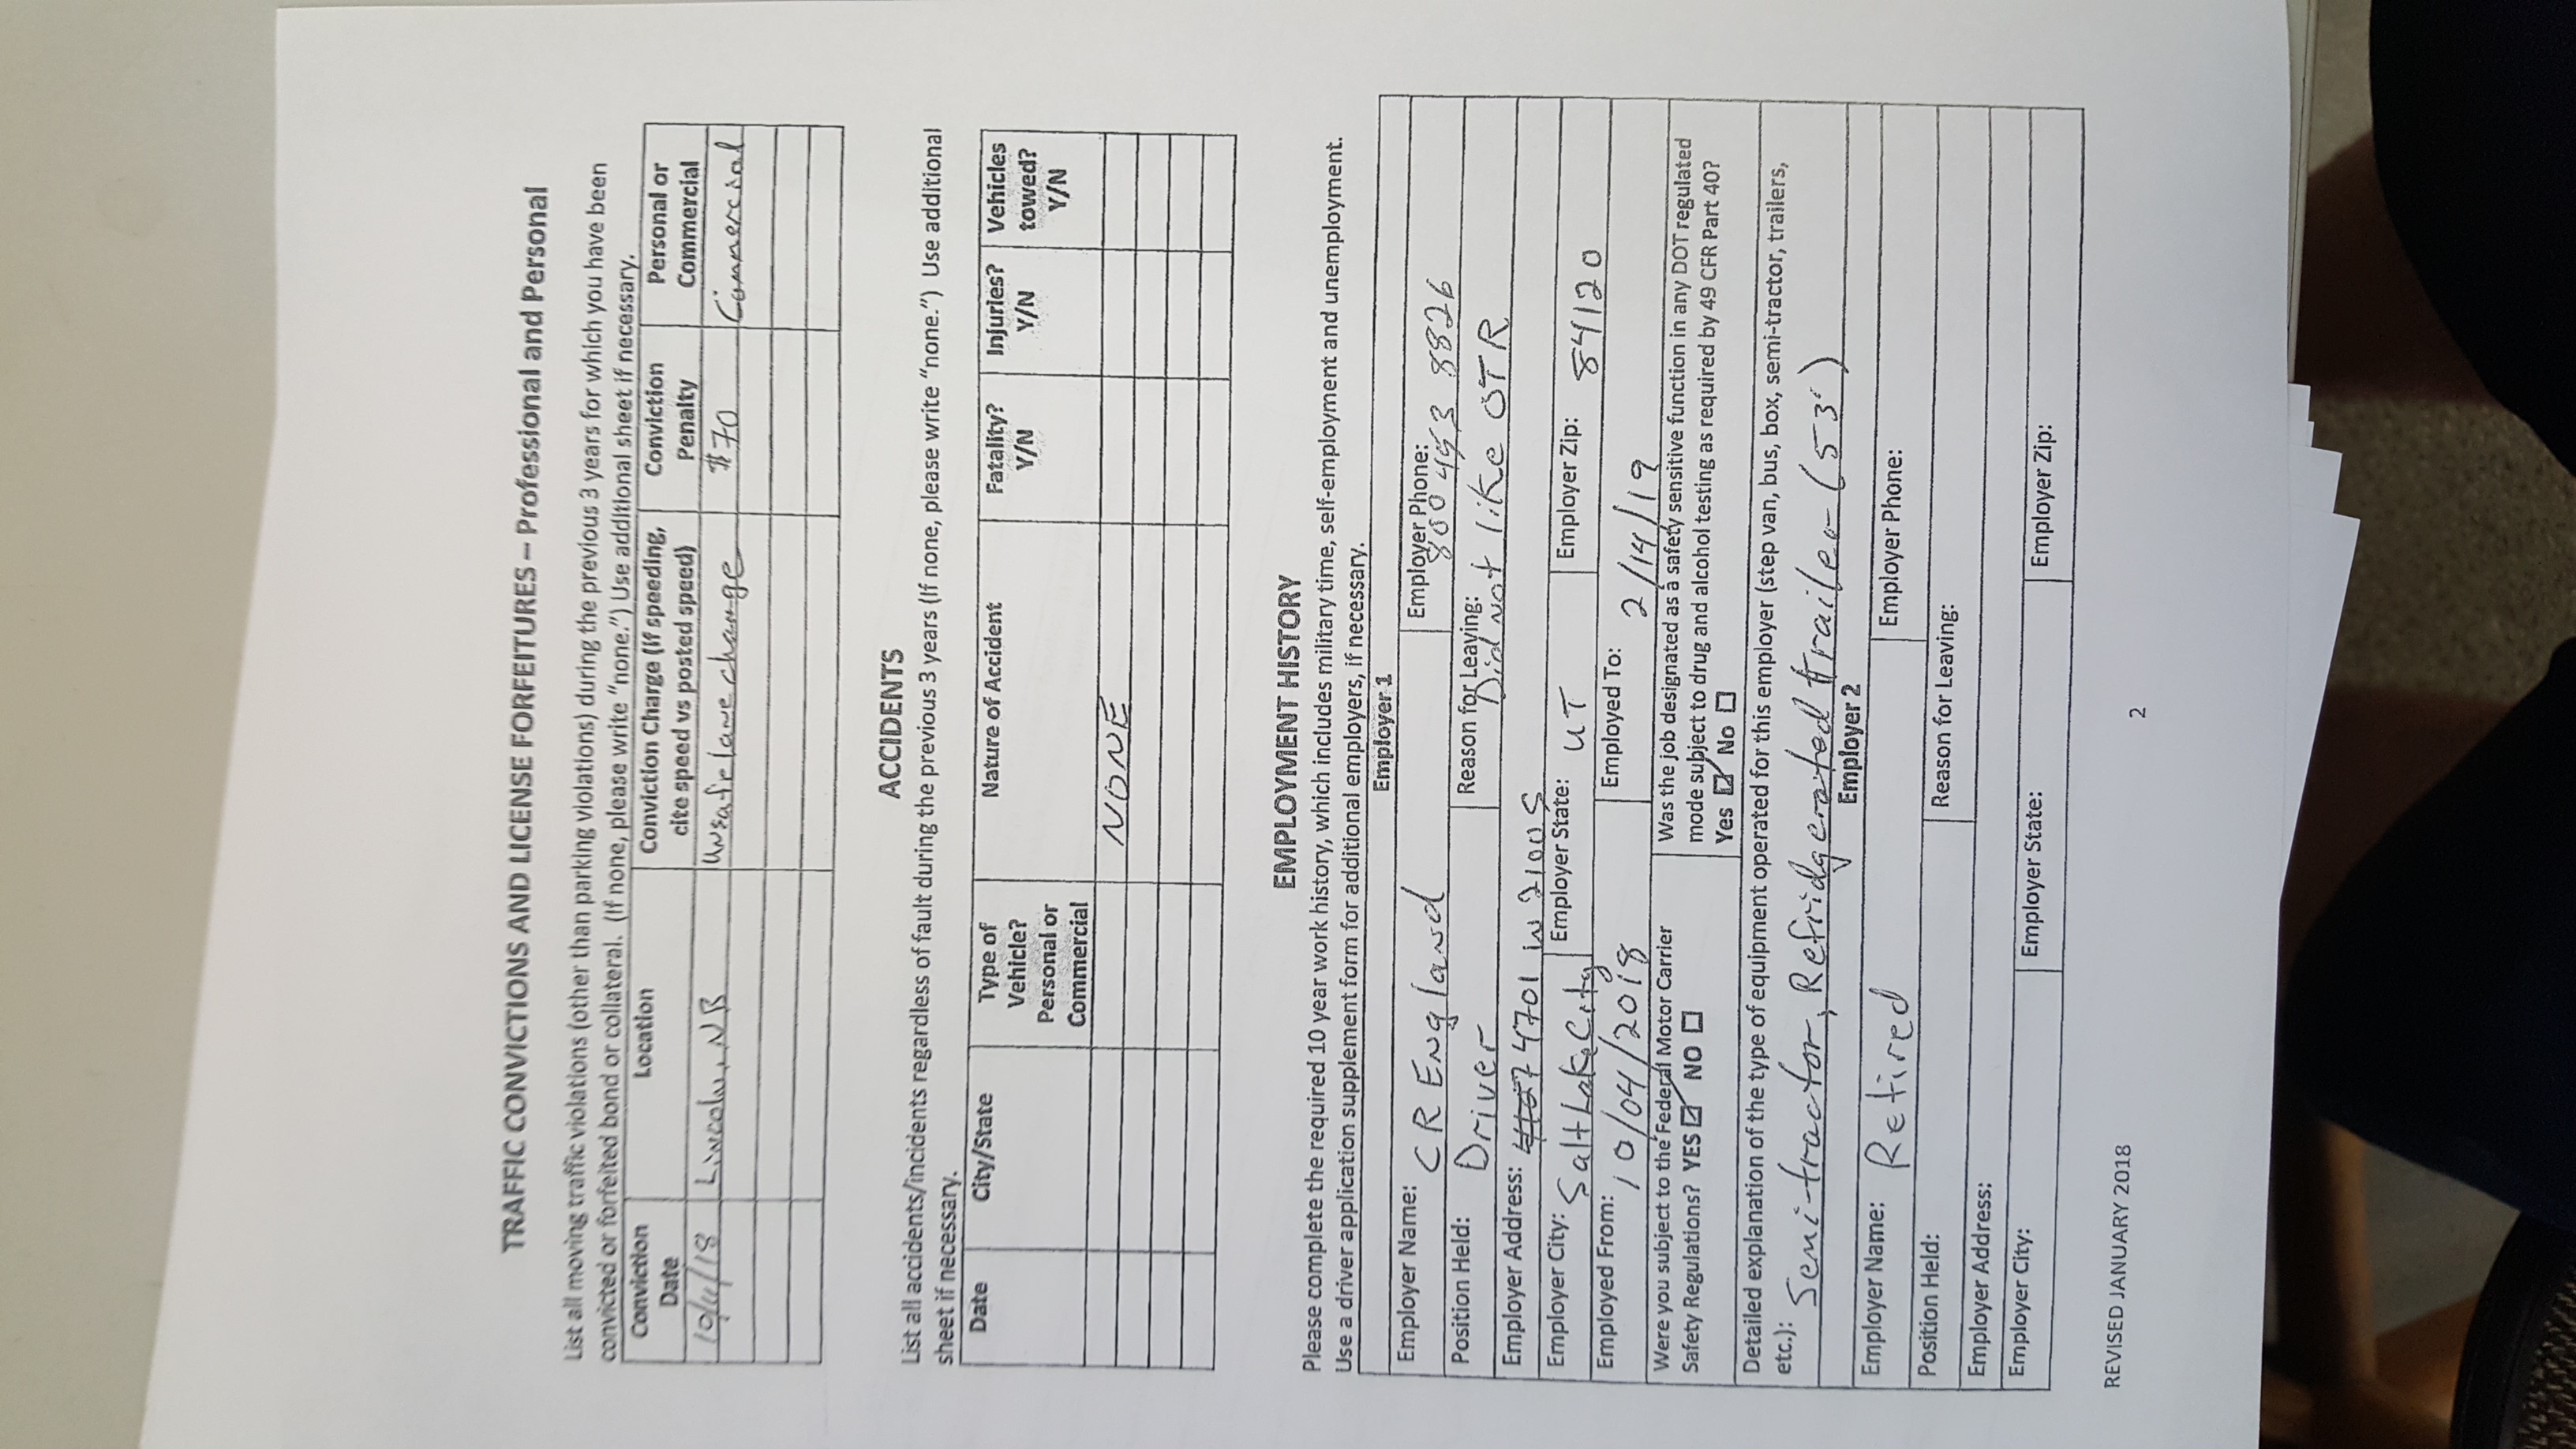 TRAFFIC CONVICTIONS AND LICENSE FORFEITURES – Professional and Personal
List all moving traffic violations (other than parking violations) during the previous 3 years for which you have been
convicted or forfeited bond or collateral. (If none, please write “none.”) Use additional sheet if necessary.
Conviction Date
Location
Conviction Charge (If speeding, cite speed vs posted speed)
Conviction Penalty
Personal or Commercial
Lincoln, NB
Unsafe lane change
$70
Commercial
ACCIDENTS
List all accidents/incidents regardless of fault during the previous 3 years (If none, please write “none.”) Use additional
sheet if necessary.
Date
City/State
Type of Vehicle? Personal or Commercial
Nature of Accident
Fatality? Y/N
Injuries? Y/N
Vehicles towed? Y/N
NONE
EMPLOYMENT HISTORY
Please complete the required 10 year work history, which includes military time, self-employment and unemployment.
Use a driver application supplement form for additional employers, if necessary.
Employer 1
Employer Name: CR England
Employer Phone: 800 493 8826
Position Held: Driver
Reason for Leaving: Did not like OTR
Employer Address: 4701 W 2100 S
Employer City: Salt Lake City
Employer State: UT
Employer Zip: 84120
Employed From: 10/04/2018
Employed To: 2/14/19
Were you subject to the Federal Motor Carrier
Safety Regulations? YES ☑ NO ☐
Was the job designated as a safety sensitive function in any DOT regulated
mode subject to drug and alcohol testing as required by 49 CFR Part 40?
Yes ☑ No ☐
Detailed explanation of the type of equipment operated for this employer (step van, bus, box, semi-tractor, trailers,
etc.): Semi-tractor, Refridgerated trailer (53')
Employer 2
Employer Name: Retired
Employer Phone:
Position Held:
Reason for Leaving:
Employer Address:
Employer City:
Employer State:
Employer Zip:
REVISED JANUARY 2018
2